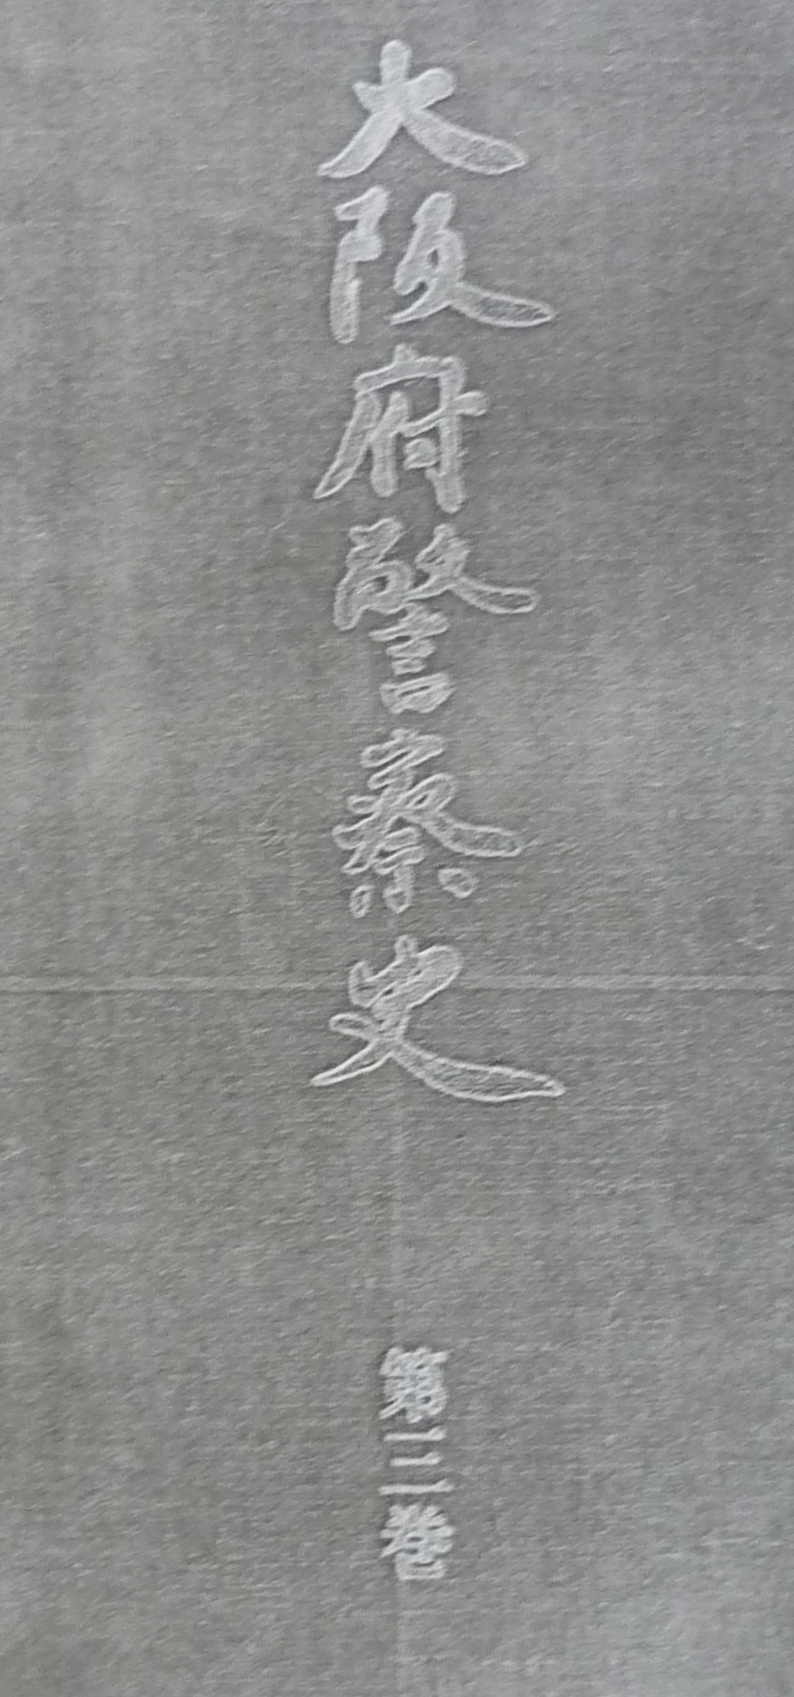 大阪府警察史
第三巻